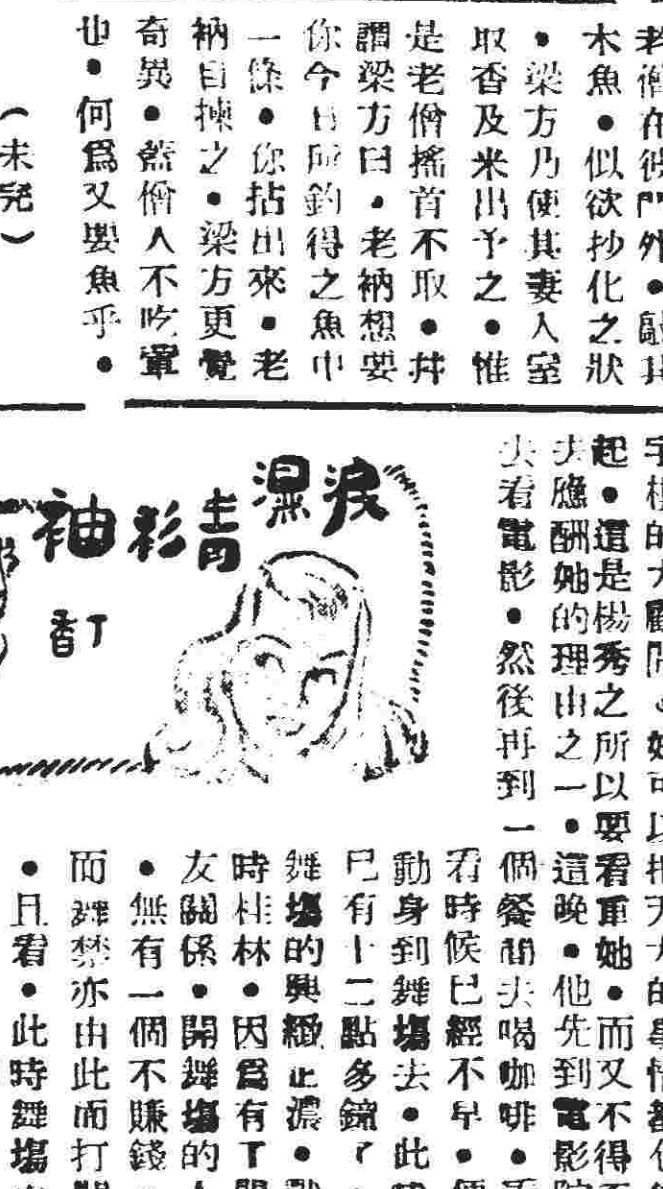 老僧在彼門外●敲其
木魚●似欲抄化之狀
●梁方乃使其妻入室
取香及米出予之●惟
是老僧搖首不取●幷
謂梁方曰●老衲想要
你今日所釣得之魚中
一條●你拈出來●老
衲自揀之●梁方更覺
奇異●蓋僧人不吃葷
也●何爲又要魚乎●
（未完）
浪濕青衫袖
丁香
起●這是楊秀之所以要看重她●而又不得
去應酬她的理由之一●這晚●他先到電影院
去看電影●然後再到一個餐間去喝咖啡●
看時候已經不早●便
動身到舞塲去●此時
已有十二點多鐘了
舞塲的興緻正濃●
時桂林●因爲有了
友關係●開舞塲的人
●無有一個不賺錢
而舞禁亦由此而打
●且看●此時舞塲